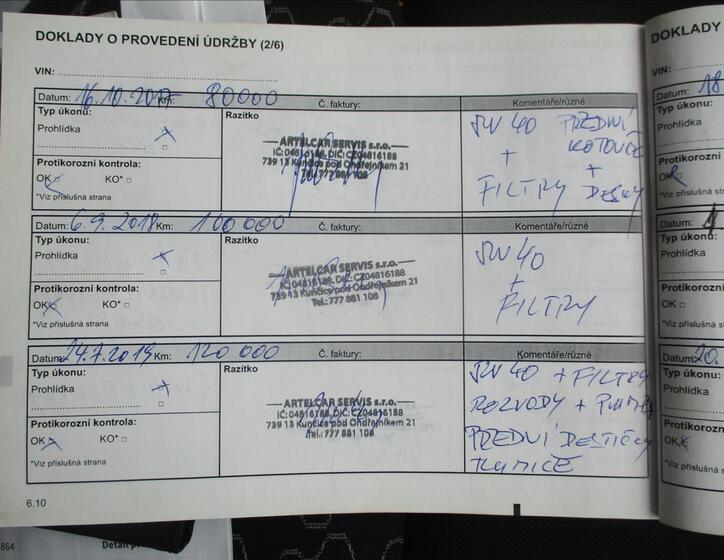 DOKLADY O PROVEDENÍ ÚDRŽBY (2/6)
VIN:
Datum: 16.10.2017 Km: 80000 Č. faktury: Komentáře/různé
Typ úkonu: Razítko
Prohlídka
Protikorozní kontrola:
OK KO*
*Viz příslušná strana
ARTELCAR SERVIS s.r.o.
IČ:04816188, DIČ:CZ04816188
739 13 Kunčice pod Ondřejníkem 21
Tel.: 777 881 108
5W40 PŘEDNÍ
+ KOTOUČE
+
FILTRY DESKY
Datum: 6.9.2018 Km: 100 000 Č. faktury: Komentáře/různé
Typ úkonu: Razítko
Prohlídka
Protikorozní kontrola:
OK KO*
*Viz příslušná strana
ARTELCAR SERVIS s.r.o.
IČ:04816188, DIČ: CZ04816188
739 13 Kunčice pod Ondřejníkem 21
Tel.: 777 881 108
5W40
+
FILTRY
Datum: 24.7.2019 Km: 120 000 Č. faktury: Komentáře/různé
Typ úkonu: Razítko
Prohlídka
Protikorozní kontrola:
OK KO*
*Viz příslušná strana
ARTELCAR SERVIS s.r.o.
IČ:04816188, DIČ: CZ04816188
739 13 Kunčice pod Ondřejníkem 21
Tel.: 777 881 108
5W40 + FILTRY
ROZVODY + PUMPA
PŘEDNÍ DESTIČKY
TLUMIČE
6.10
DOKLADY
VIN:
Datum: 18
Typ úkonu:
Prohlídka
Protikorozní
OK
*Viz příslušná
Datum: 1
Typ úkonu:
Prohlídka
Protikorozní
OK
*Viz příslušná
Datum: 20.
Typ úkonu:
Prohlídka
Protikorozní
OK
*Viz příslušná
864